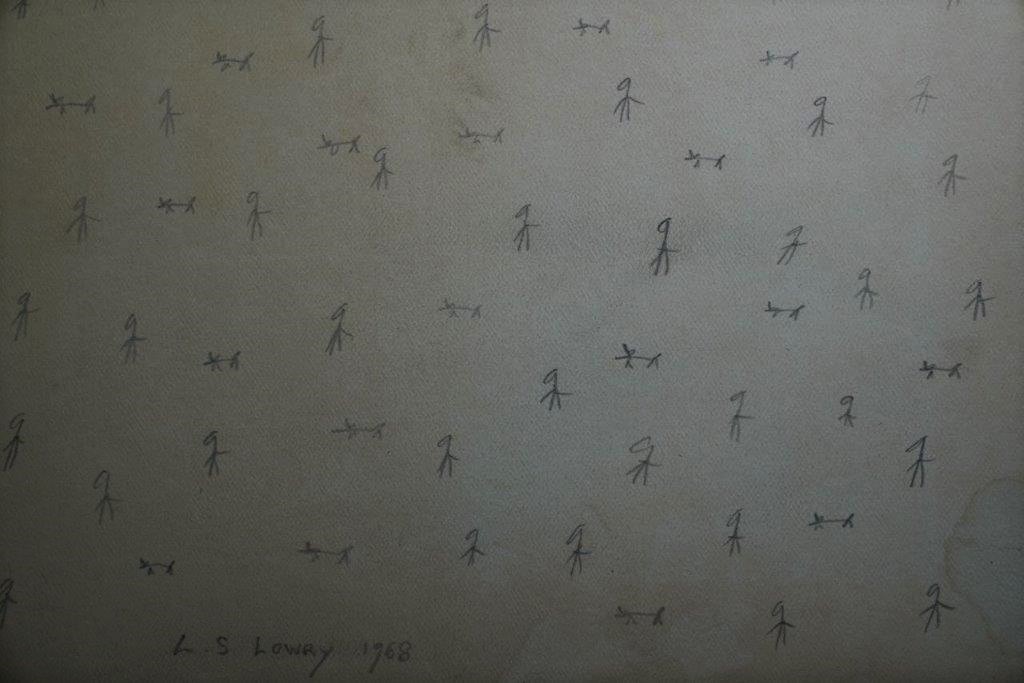 L. S LOWRY 1968